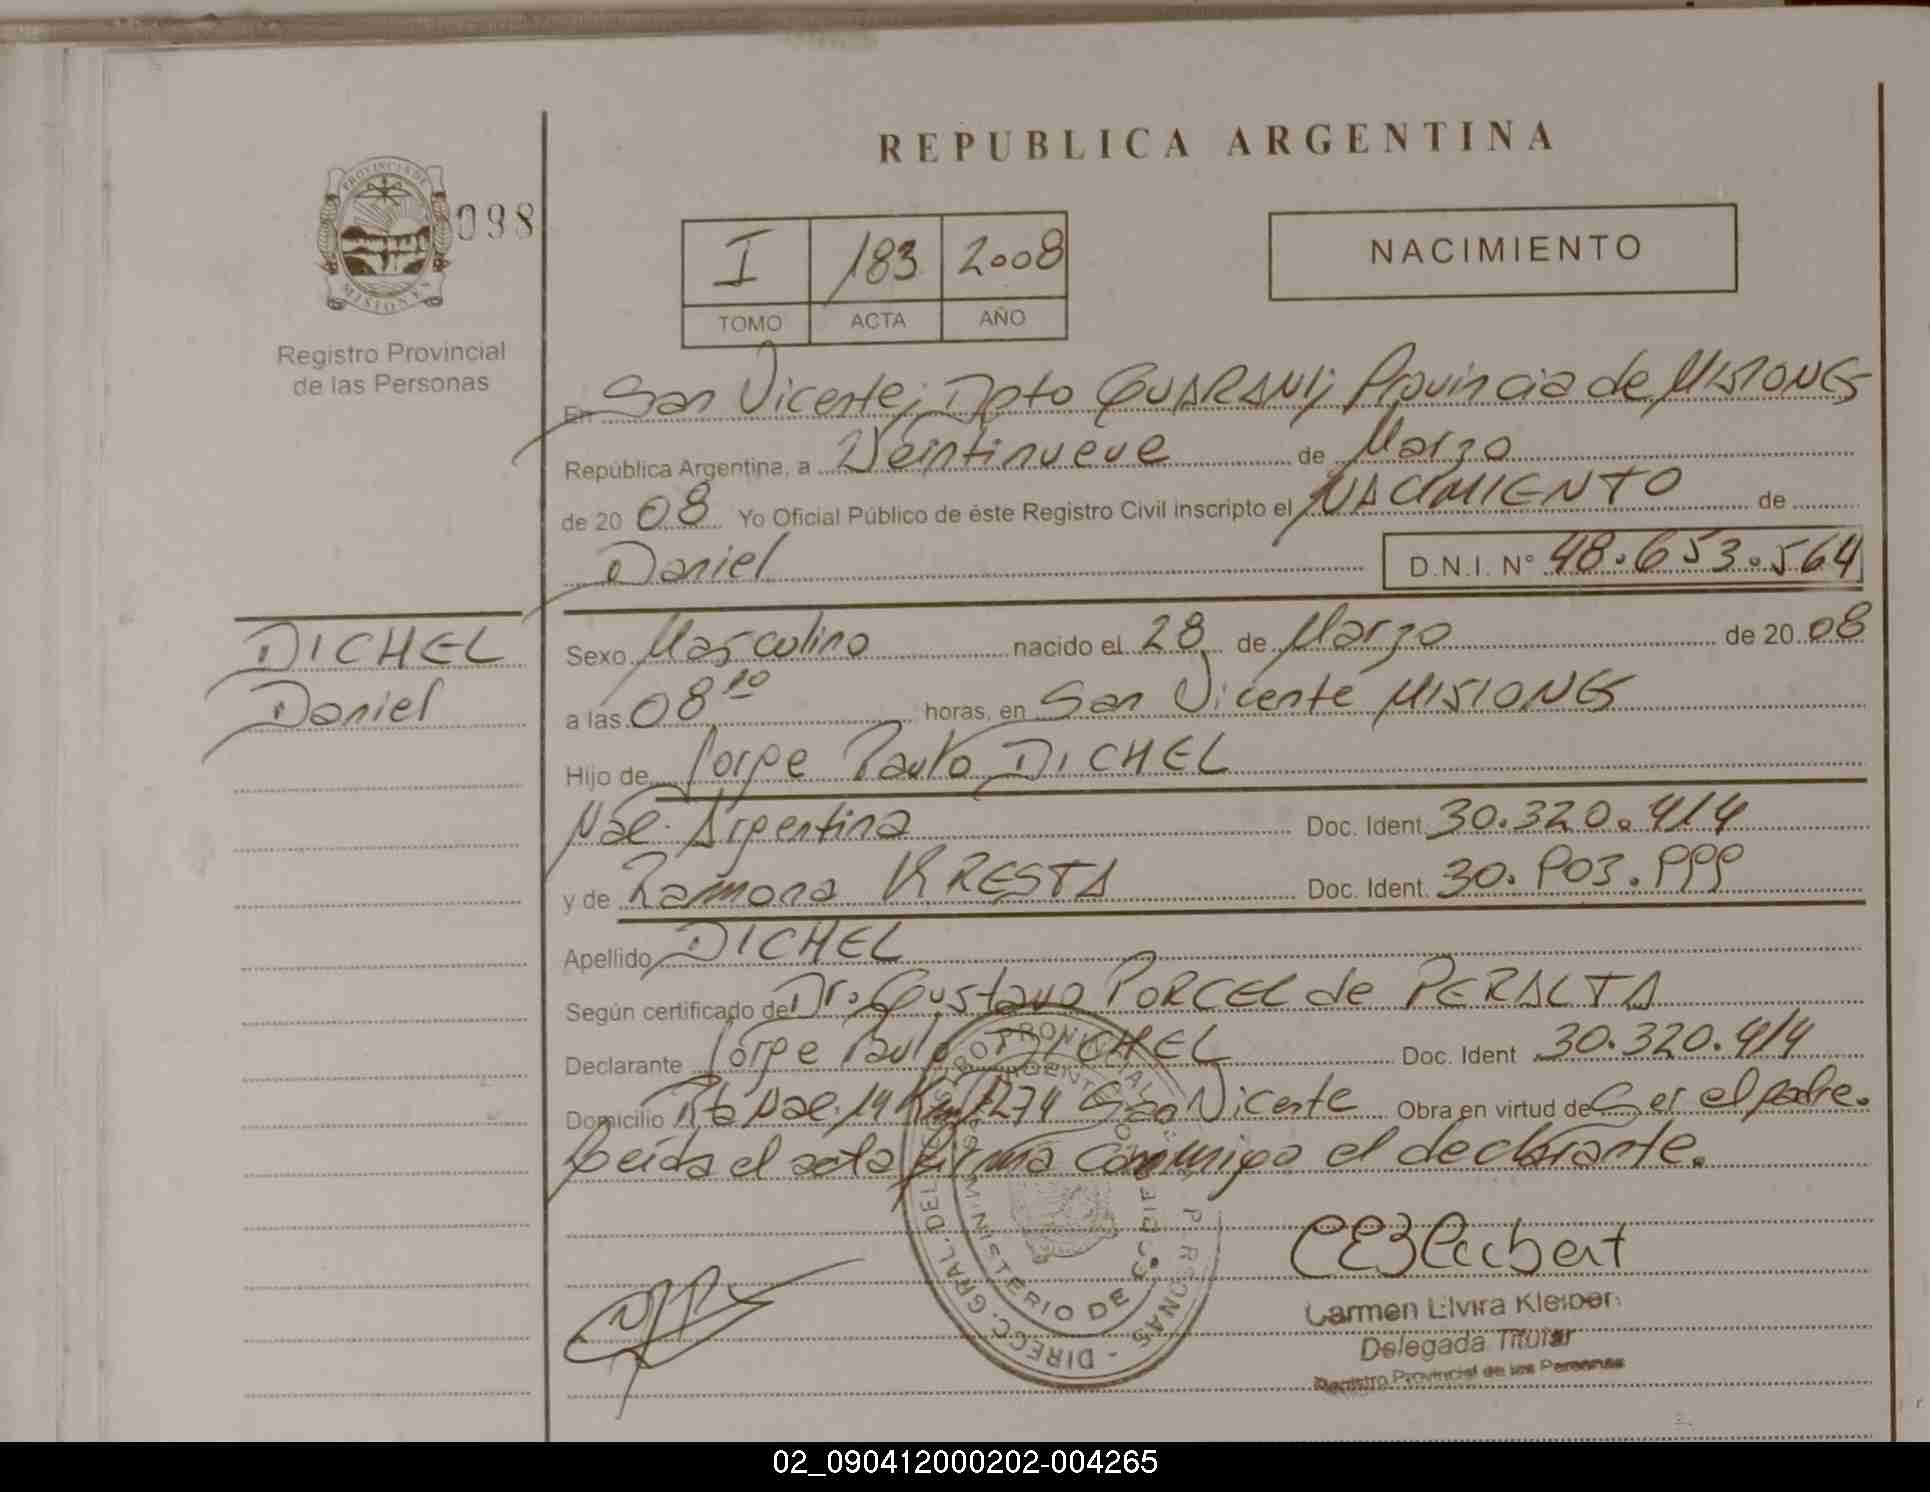 REPUBLICA ARGENTINA
PROVINCIA DE
MISIONES
098
Registro Provincial
de las Personas
I 183 2008
TOMO ACTA AÑO
NACIMIENTO
En San Vicente; Dpto GUARANI; Provincia de MISIONES
República Argentina, a Veintinueve de Marzo
de 20 08 Yo Oficial Público de éste Registro Civil inscripto el NACIMIENTO de
Daniel D.N.I. N° 48.653.564
DICHEL
Daniel
Sexo Masculino nacido el 28 de Marzo de 20 08
a las 08 10 horas, en San Vicente MISIONES
Hijo de Jorge Paulo DICHEL
Nac. Argentina Doc. Ident. 30.320.414
y de Ramona KRESTA Doc. Ident. 30.903.999
Apellido DICHEL
Según certificado de Dr. Gustavo PORCEL de PERALTA
Declarante Jorge Paulo DICHEL Doc. Ident 30.320.414
Domicilio Rta Nac. 14 Km 1274 San Vicente Obra en virtud de Ser el padre.
Leida el acta firma conmigo el declarante.
DIRECC. GRAL. DEL
MINISTERIO DE
Carmen Elvira Kleiber
Delegada Titular
Registro Provincial de las Personas
02_090412000202-004265